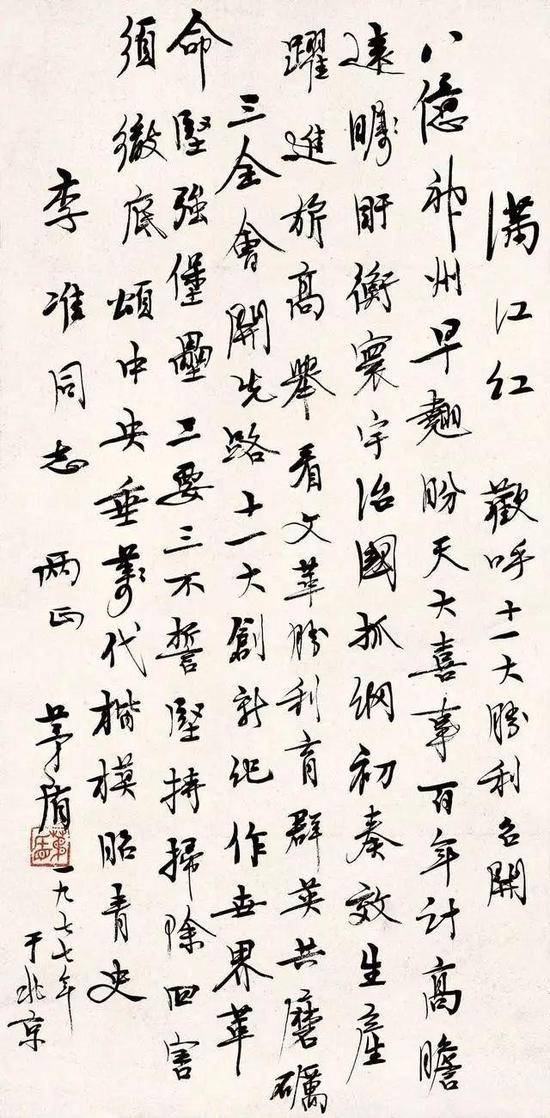 滿江紅 歡呼十一大勝利召開
八億神州早翹盼天大喜事百年計高瞻
遠矚盱衡寰宇治國抓綱初奏效生産
躍進旂高舉看文革勝利育群英共磨礪
三全會開先路十一大創新紀作世界革
命堅強堡壘三要三不誓堅持掃除四害
須徹底頌中央垂萬代楷模昭青史
李准同志 兩正
茅盾
茅盾
一九七七年
于北京